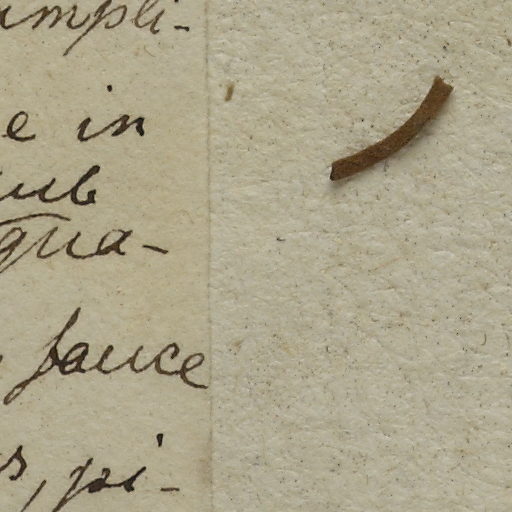 ampli-
e in
sub
qua-
fauce
s, pi-